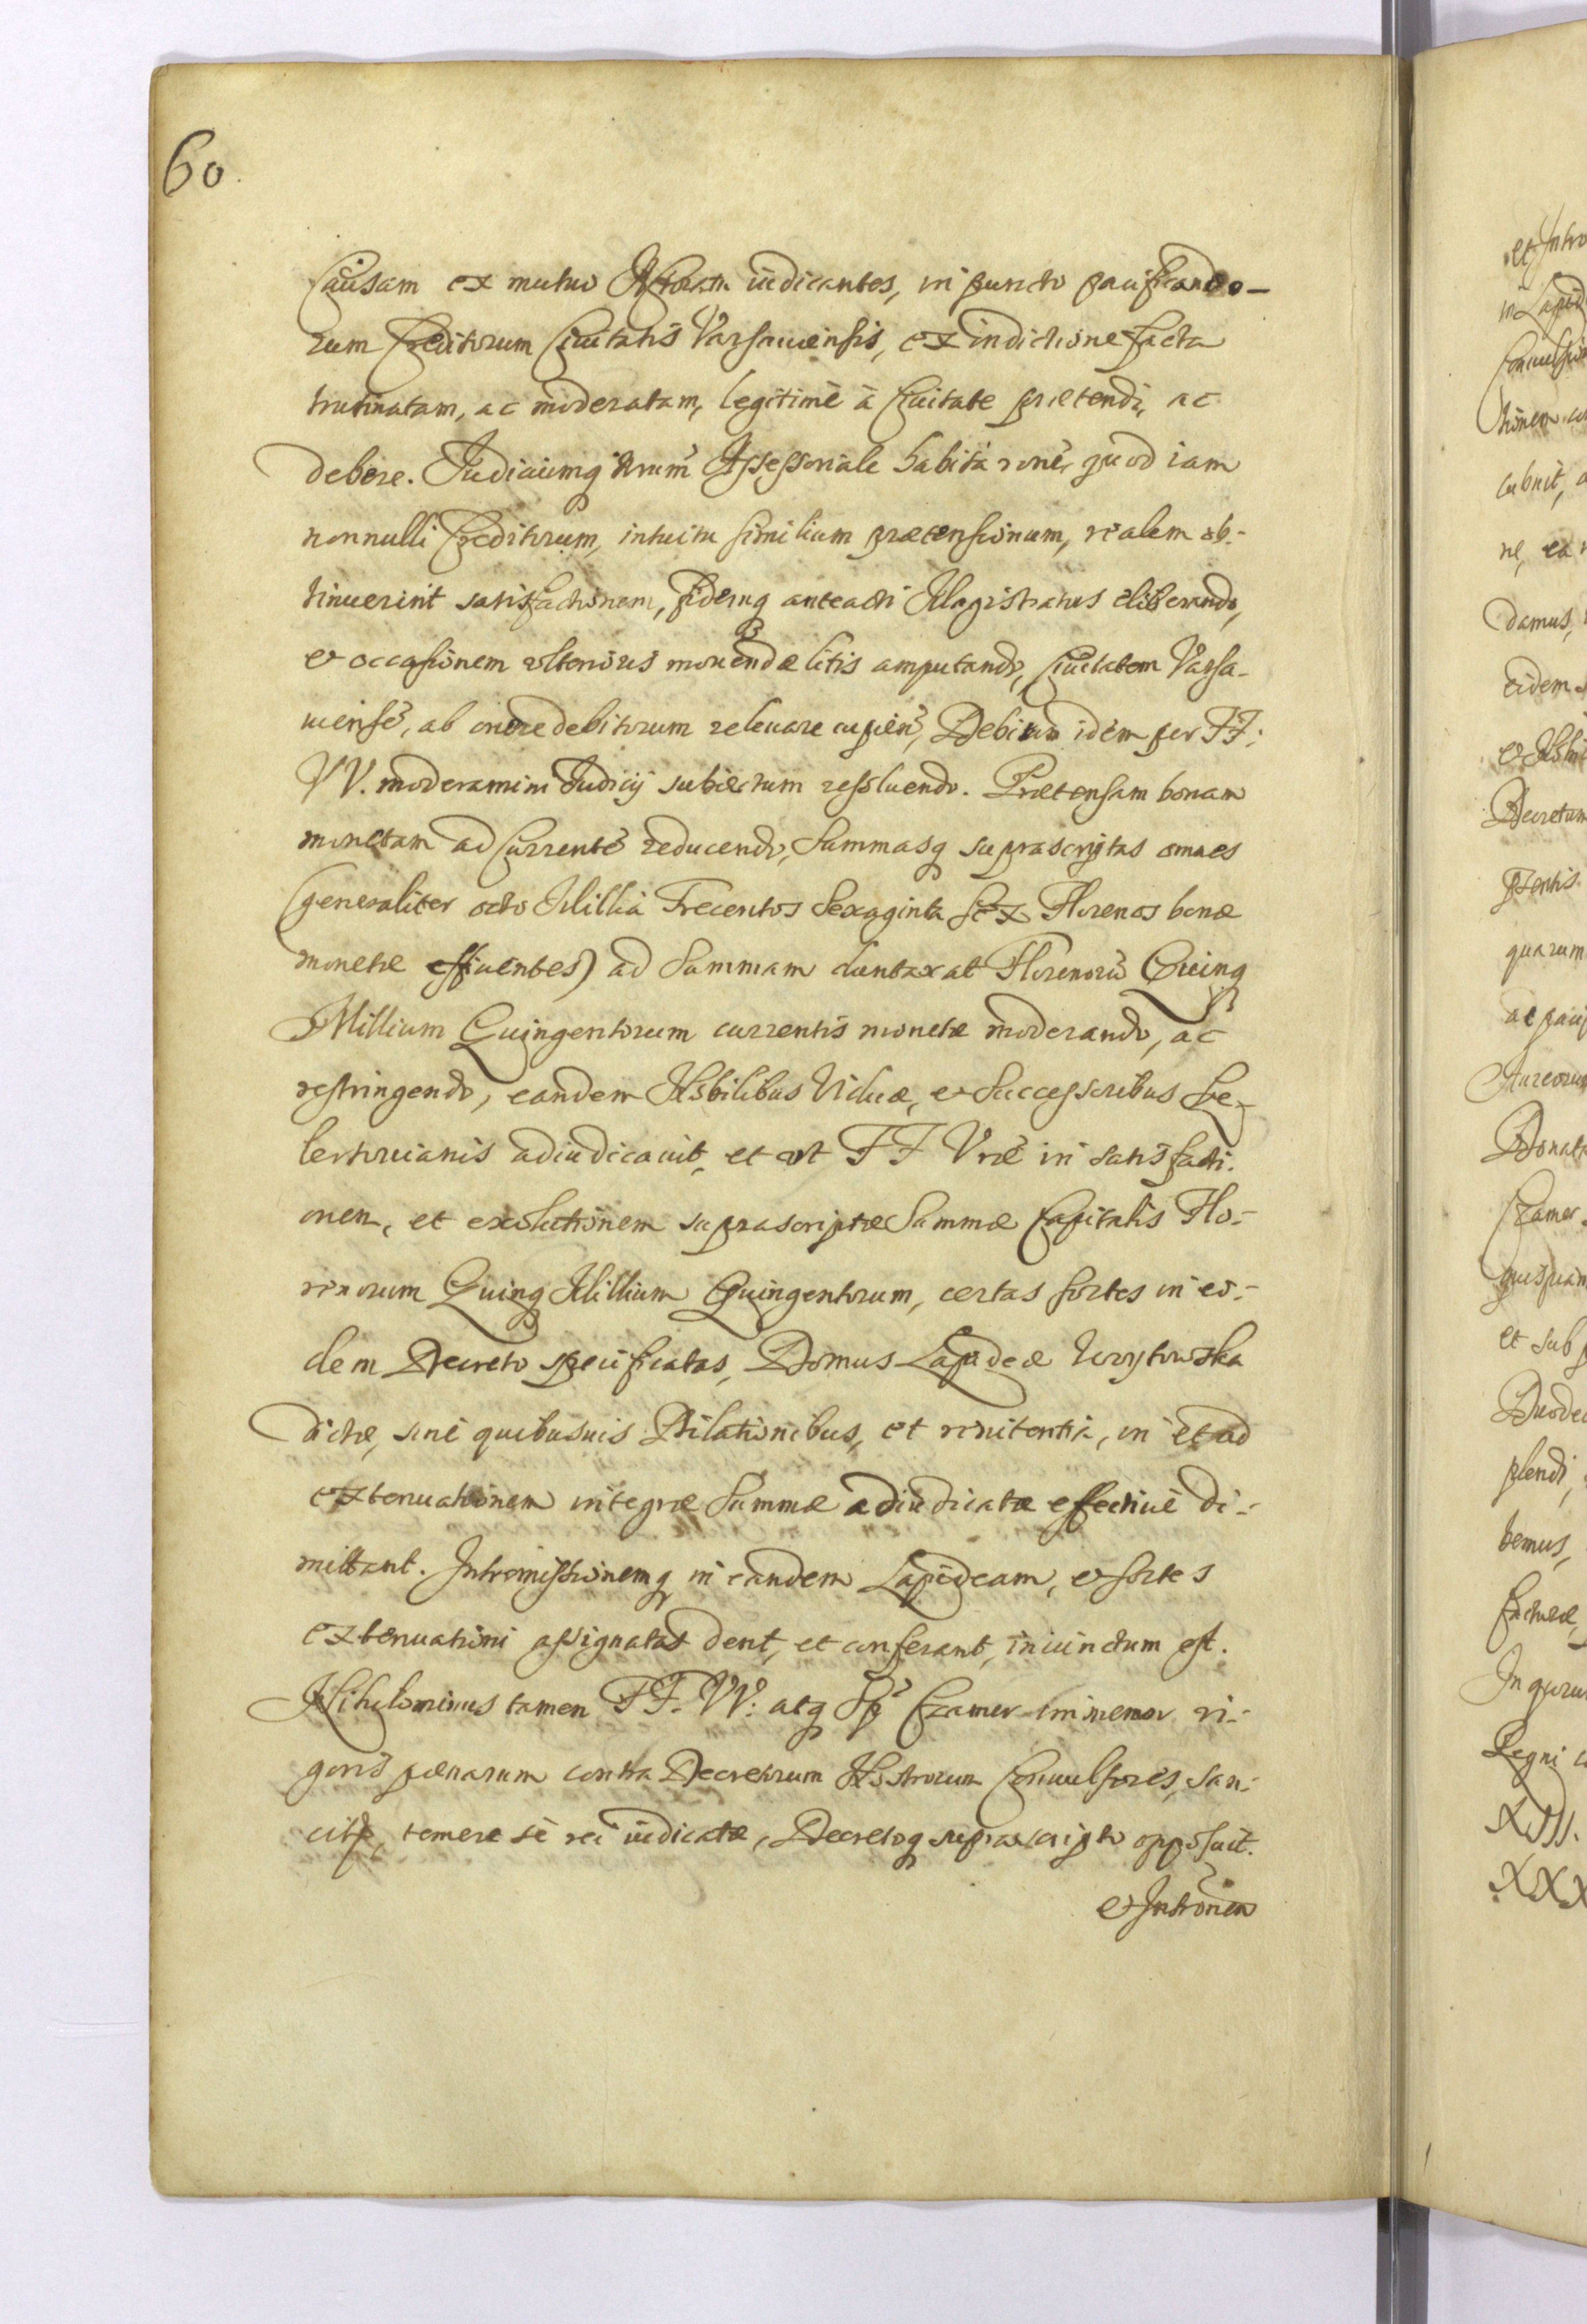 60.
Causam ex mutuo Actoratu iudicantes, in puncto pacificando-
rum Creditorum Ciuitatis Varsauiensis, ex indictione facta
trutinatam, ac moderatam, legitimè à Ciuitate prætendi, ac
debere. Iudiciumq Assessoriale habita ronē, quod iam
nonnulli Creditorum, intuitu similium prætensionum, realem ob-
tinuerint satisfactionem, fidemq anteacti Magistratus eliberando,
et occasionem vlterioris mouendæ litis amputando, Ciuitatem Varsa-
uiensē, ab onere debitorum releuare cupien, Debitum idem per FF:
VV. moderamini Iudicij subiectum ressluendo. Prætensam bonam
monetam ad Currentē reducendo, Summasq suprascriptas omnes
(generaliter octo Millia Trecentos Sexaginta sex Florenos bonæ
monetæ efficientes) ad Summam duntaxat Florenorū Quinq
Millium Quingentorum currentis monetæ moderando, ac
restringendo, eandem Nobilibus Viduæ, et Successoribus
adiudicauit, et vt FF Vræ in satisfacti-
onem, et exolutionem suprascriptæ Summæ Capitalis Flo-
renorum Quinq Millium Quingentorum, certas sortes in eo-
dem Decreto specificatas, Domus Lapideæ
dictæ, sine quibusuis Dilationibus, et renitentia, in et ad
extenuationem integræ Summæ adiudicatæ effectiuè di-
mittant. Intromissionemq in eandem Lapideam, et sortes
extenuationi assignatas dent, et conferant, iniunctum est.
Nihilominus tamen FF. VV: atq Sp Czamer immemor ri-
goris pænarum contra Decretorum Nostrorum Conuulsores, san-
cit, temere se rei iudicatæ, Decretoq suprascripto opposuit.
et Intronen